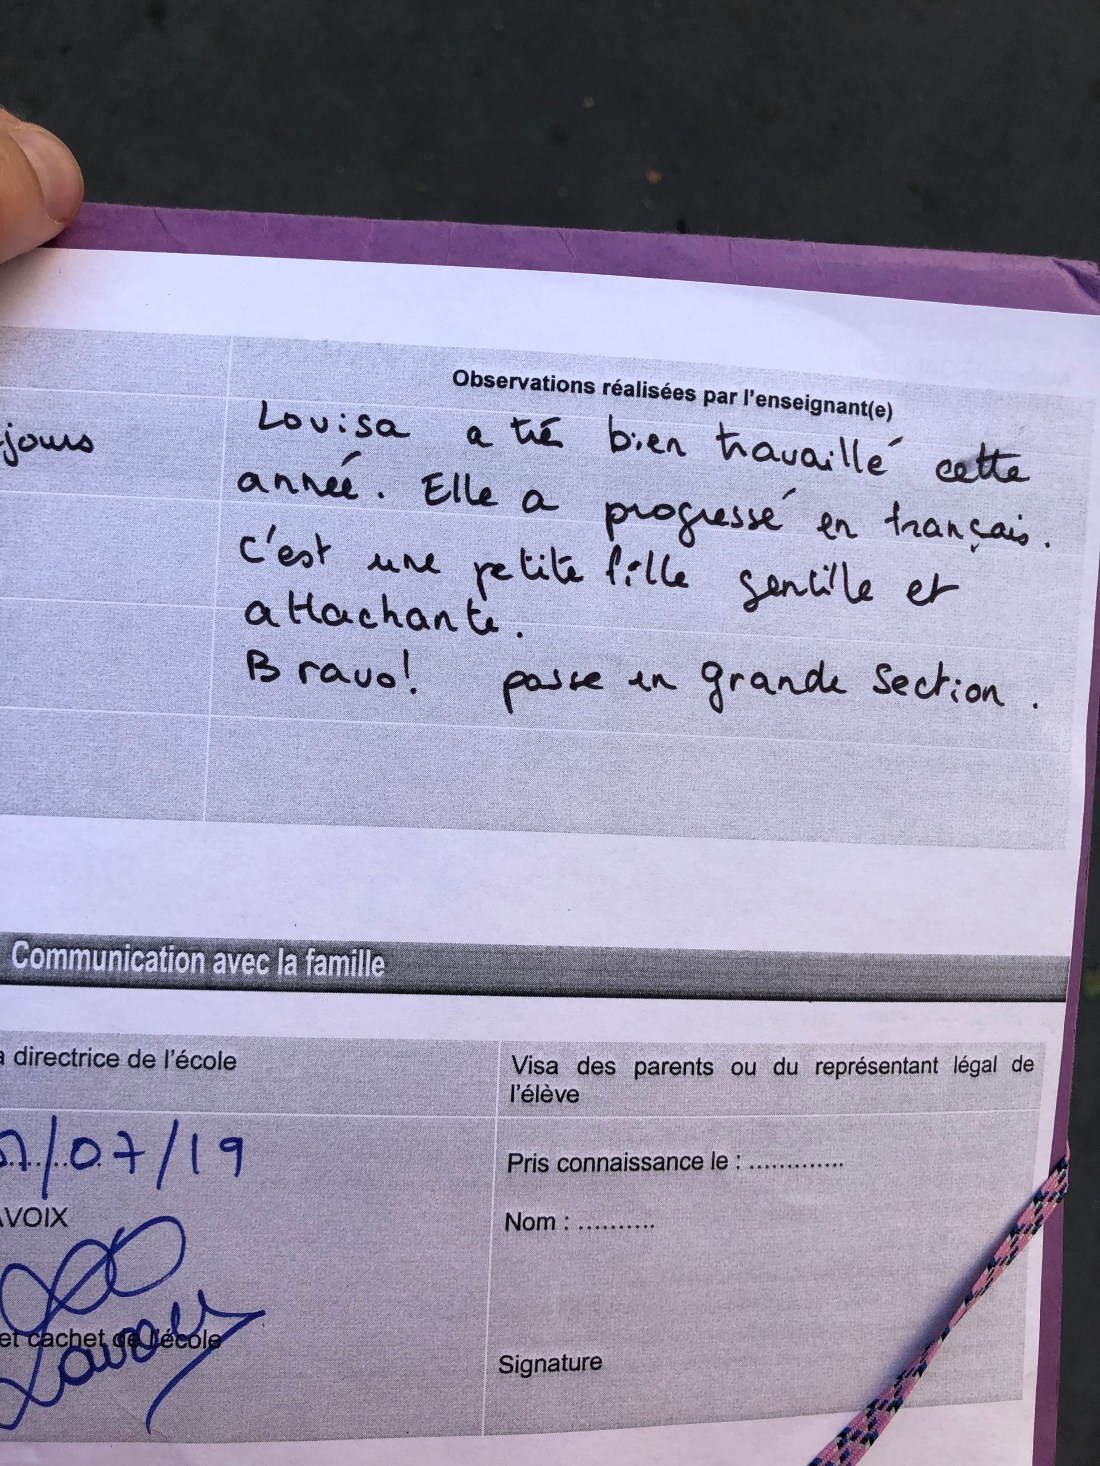 Observations réalisées par l'enseignant(e)
jours
Louisa a tré bien travaillé cette
année. Elle a progressé en français.
c'est une petite fille gentille et
attachante.
Bravo! passe en grande section.
Communication avec la famille
directrice de l'école
/07/19
VOIX
et cachet de l'école
Visa des parents ou du représentant légal de
l'élève
Pris connaissance le : .............
Nom : ..........
Signature